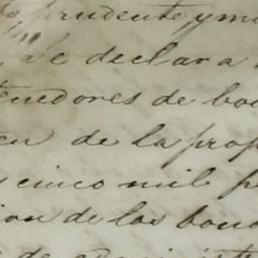 prudente, y mo
se declara
tenedores de bo
en de la prop
cinco mil p
ion de los bon
de